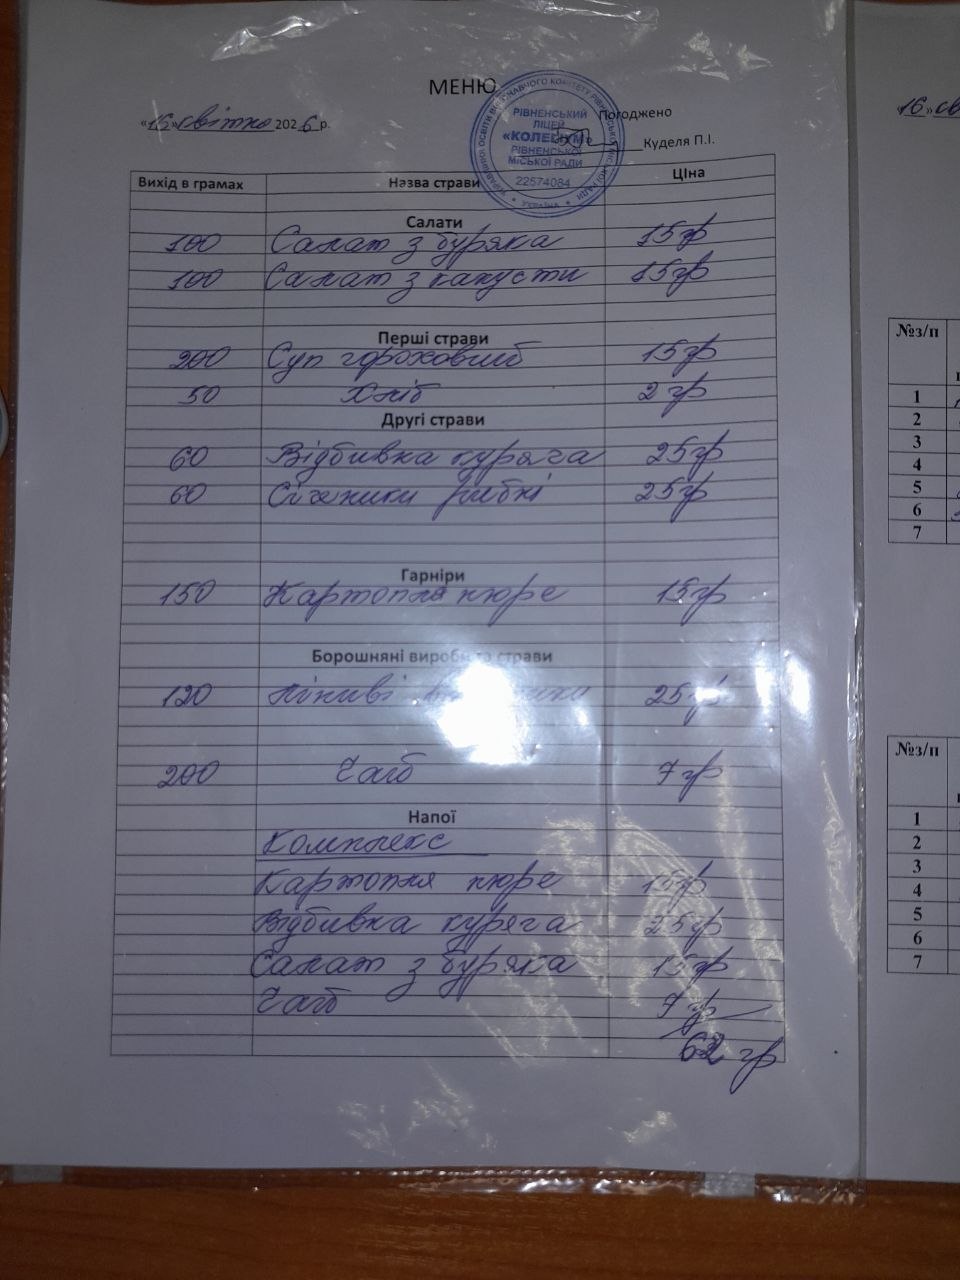 МЕНЮ
Погоджено
«16» світня 2026 р.
Куделя П.І.
УПРАВЛІННЯ ОСВІТИ ВИКОНАВЧОГО КОМІТЕТУ РІВНЕНСЬКОЇ МІСЬКОЇ РАДИ
РІВНЕНСЬКИЙ
ЛІЦЕЙ
«КОЛЕГІУМ»
РІВНЕНСЬКОЇ
МІСЬКОЇ РАДИ
22574084
* УКРАЇНА *
Вихід в грамах Назва страви Ціна
Салати
100 Салат з буряка 15гр
100 Салат з капусти 15гр
Перші страви
200 Суп гороховий 15гр
50 Хліб 2 гр
Другі страви
60 Відбивка куряча 25гр
60 Січеники рибні 25гр
Гарніри
150 Картопля пюре 15гр
Борошняні вироби та страви
120 Ліниві 25гр
200 Чай 7 гр
Напої
Комплекс
Картопля пюре 15гр
Відбивка куряча 25гр
Салат з буряка 15гр
Чай 7 гр
62 гр
«16» св
№з/п
1
2
3
4
5
6
7
№з/п
1
2
3
4
5
6
7